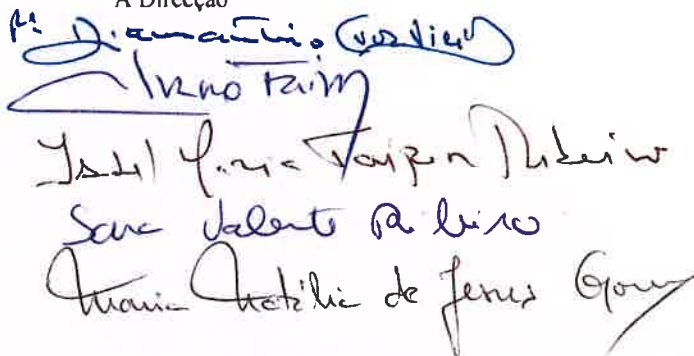 A Direcção
Pe Diamantino
Nuno Faim
Isabel Maria Ribeiro
Sara Valente Ribeiro
Maria Natália de Jesus Gomes